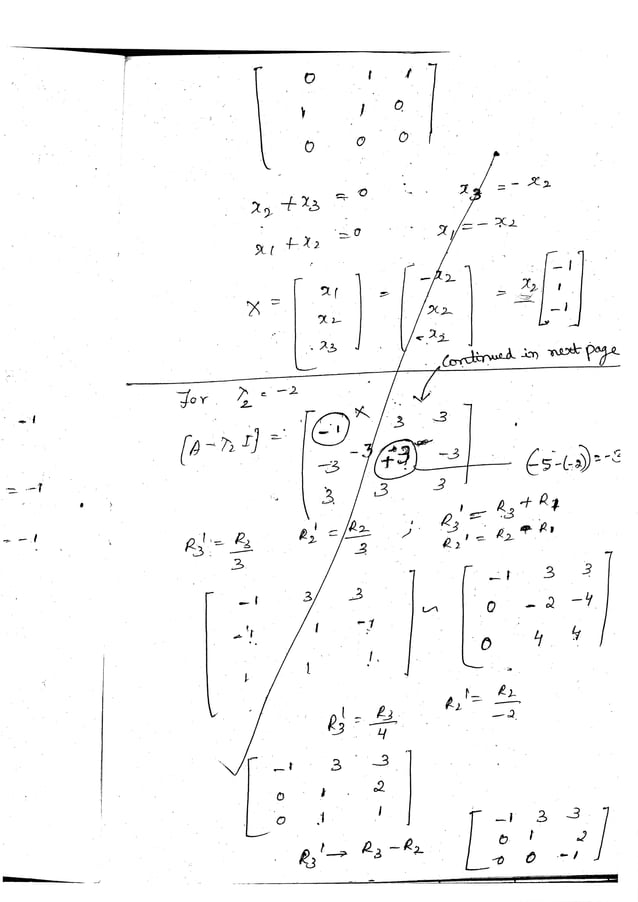 [ 0 1 1
1 1 0
0 0 0 ]
x2 + x3 = 0 ∴ x3 = - x2
x1 + x2 = 0 x1 = - x2
X = [ x1 x2 x3 ] = [ -x2 x2 -x2 ] = x2 [ -1 1 -1 ]
Continued in next page
For λ2 = -2
-1
[A - λ2 I] = [ -1 x 3 3
-3 -3 +3 -3 (-5-(-2)) = -3
3 3 3 ]
= -1
R3' = R3/3 R2' = R2/3 ; R3' = R3 + R1
R2' = R2 - R1
= -1
[ -1 3 3
-1 1 -1
1 1 1 ]
~ [ -1 3 3
0 -2 -4
0 4 4 ]
R3' = R3/4 R2' = R2/-2
[ -1 3 3
0 1 2
0 1 1 ]
R3' → R3 - R2
[ -1 3 3
0 1 2
0 0 -1 ]